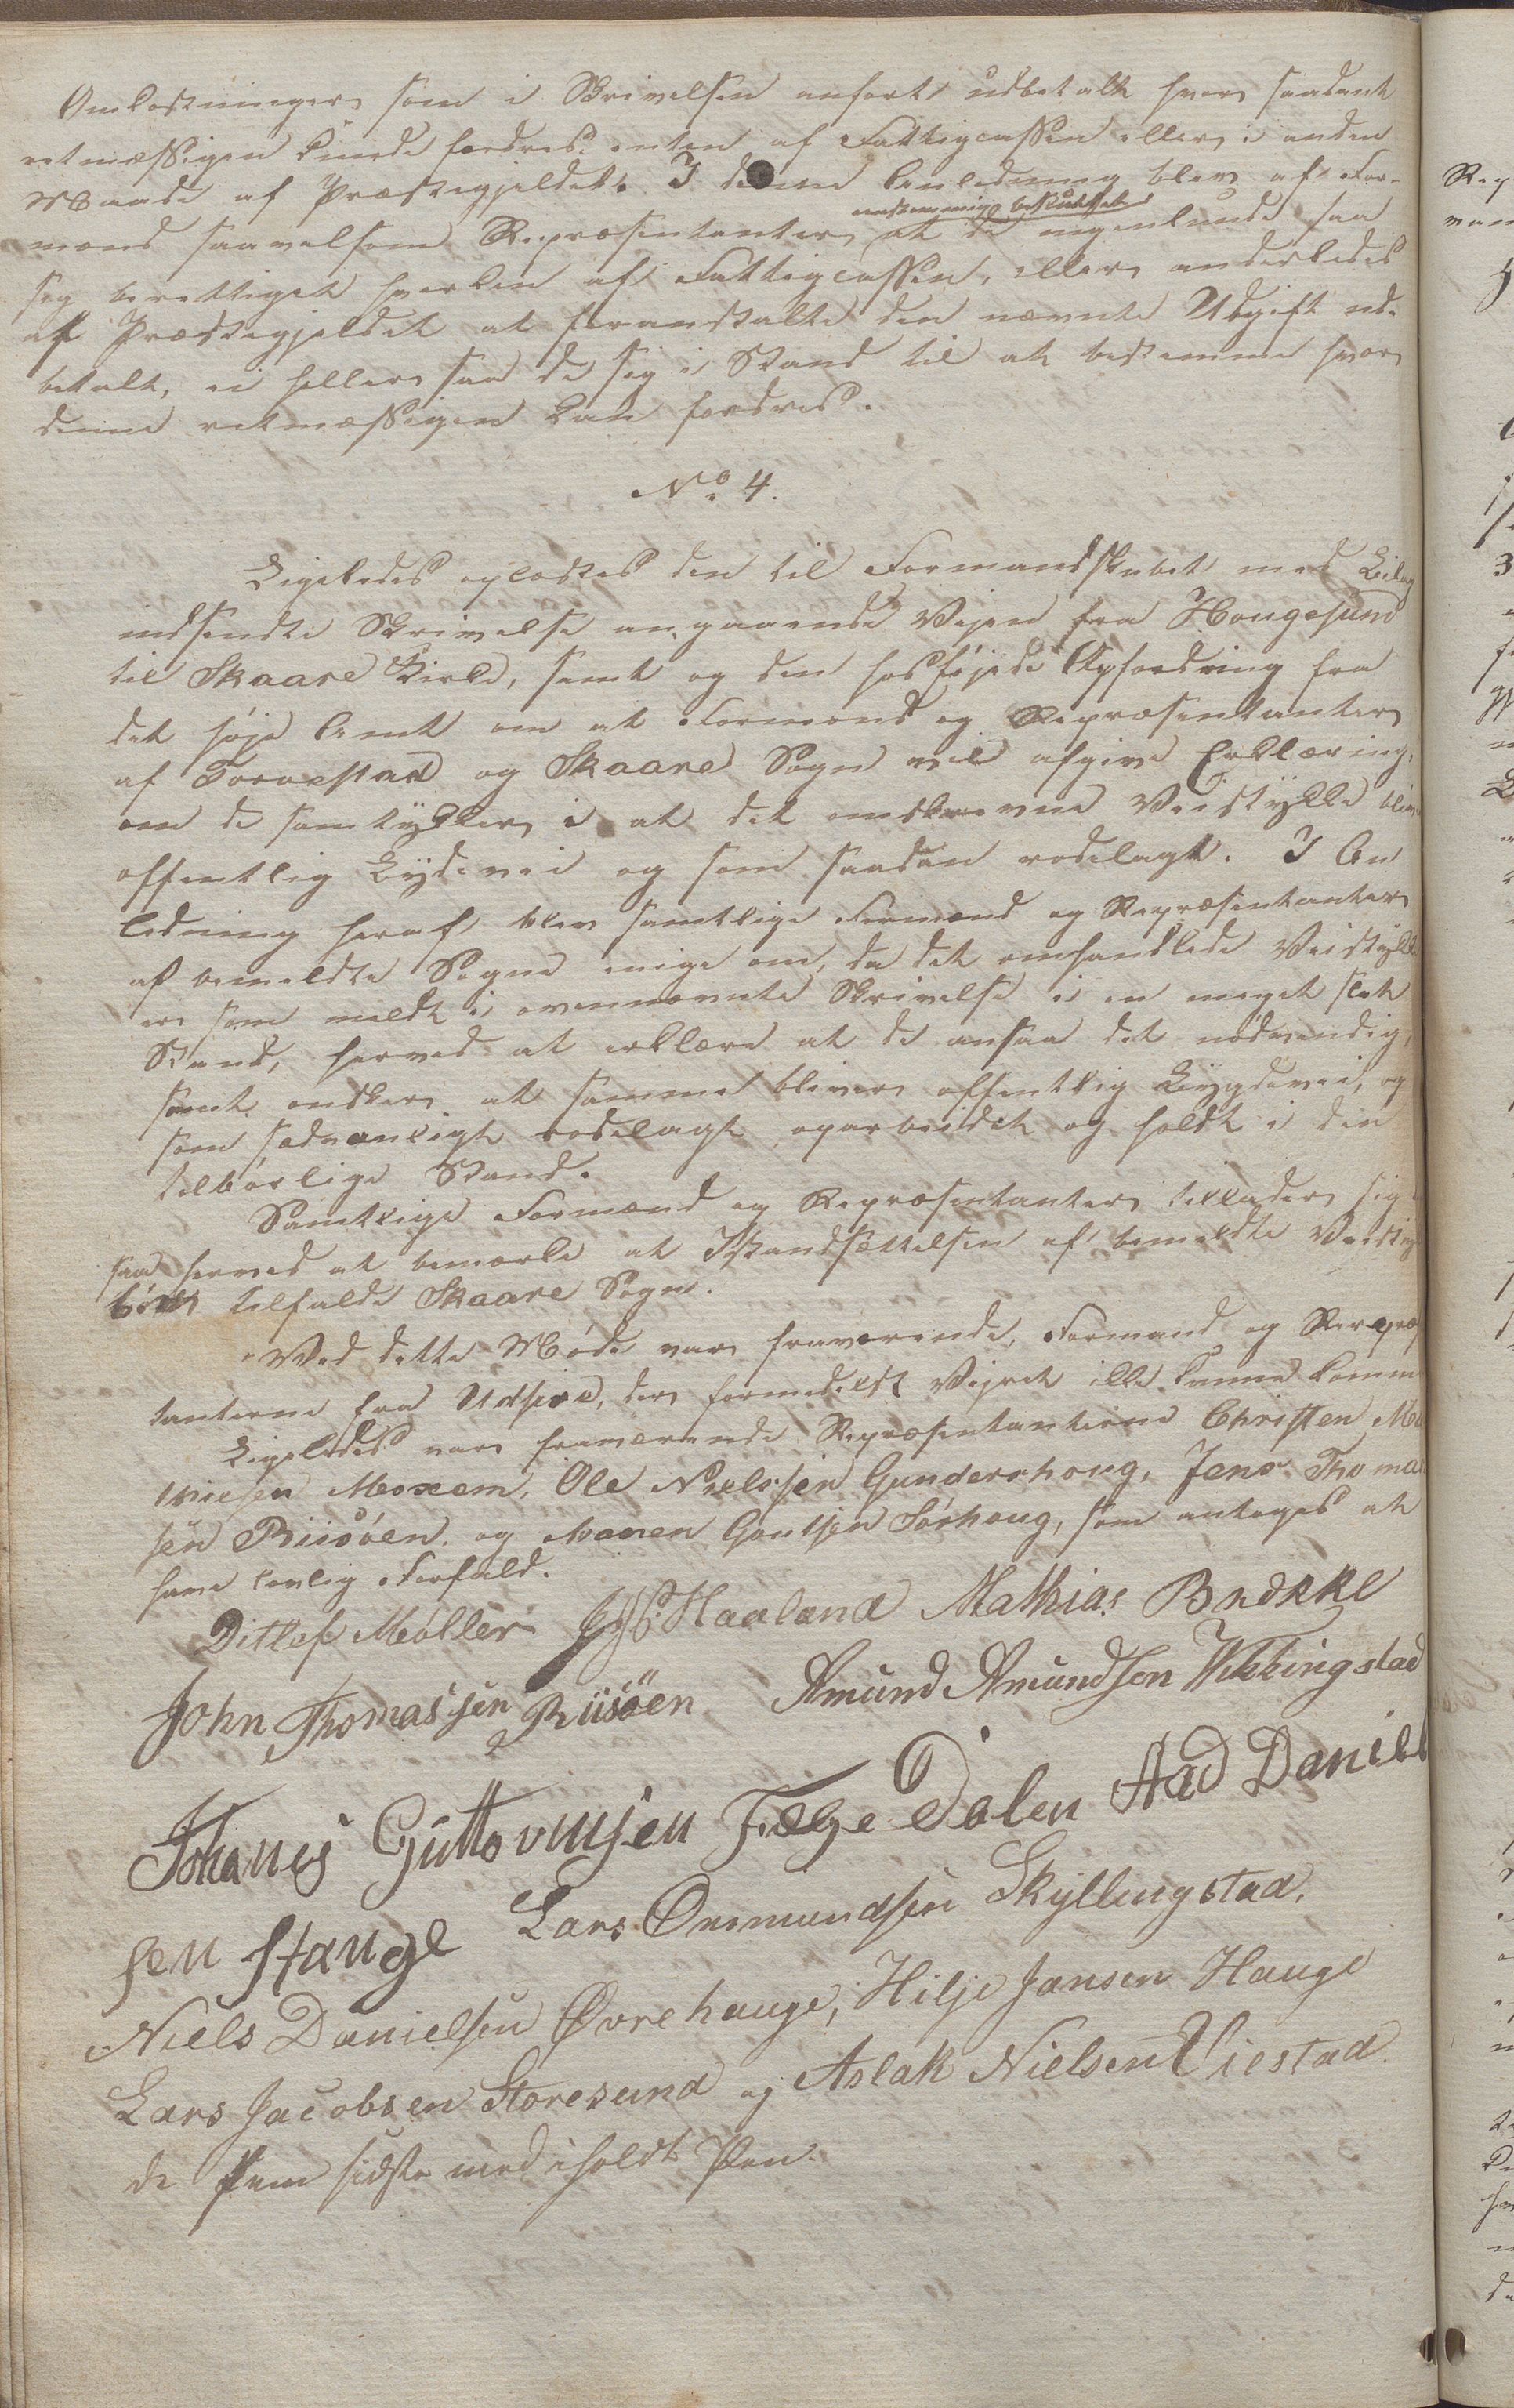 Omkostninger som i Skrivelsen anført udbetalt hvor saadant
retmæssigen kunde fordres enten af Fattigcassen eller i anden
Maade af Præstegjeldet. I denne Anledning blev af For-
eenstemmig besluttet
mænd saavelsom Repræsentanter at de ingenlunde saa
sig berettiget hverken af Fattigcassen, eller anderledes
af Præstegjeldet at foranstalte den nævnte Udgift ud-
betalt, ei heller saa de sig i Stand til at bestemme hvor
denne retmæssigen kan fordres.
No. 4.
Ligeledes oplæstes den til Formandskabet med Bilag
indsendte Skrivelse angaaende Vejen fra Hougesund
til Skaare Kirke, samt og den hosføjede Opfordring fra
det høje Amt om at Formænd og Repræsentanter
af Torvestad og Skaare Sogn vil afgive Erklæring,
om de samtykker i at det omskrevne Veistykke bliver
offentlig Bydevei og som saadan rodelagt. I An
ledning heraf blev samtlige Formænd og Repræsentanter
af bemeldte Sogne enige om, da det omhandlede Veistykke
er som meldt i ovennævnte Skrivelse i en meget slet
Stand, herved at erklære at de ansaa det nødvendig,
samt ønsker at samme bliver offentlig Bygdevei, og
som sædvanligt rodelagt oparbeidet og holdt i den
tilbørlige Stand.
Samtlige Formænd og Repræsentanter tillader sig
saa herved at bemærke at Istandsættelsen af bemeldte
bør tilfalde Skaare Sogn.
Ved dette Møde var fraværende, Formand og
tanterne fra Udsire, der formedelst Vejret ikke kunne komme
Ligeledes var fraværende Repræsentanterne Christen
thiesen Moxem, Ole Nielssen Gunderhoug, Jens Thoma
sen Riisøen og Monen Goutsen Sørhoug, som antages at
have lovlig Forfald.
Ditlef Møller Haaland Mathias Brekke
John Thomassen Riisøen Amund Amundsen Wikkingstad
Johanes Guttormsen Fælge Dalen Aad Daniel
sen Hauge Lars Ommundsen Skyllingstad,
Niels Danielsen Øvrehauge, Hilje Jansen Hauge
Lars Jacobsen Storesund og Aslak Nielsen Viestad
de fem sidste med iholdt Pen.